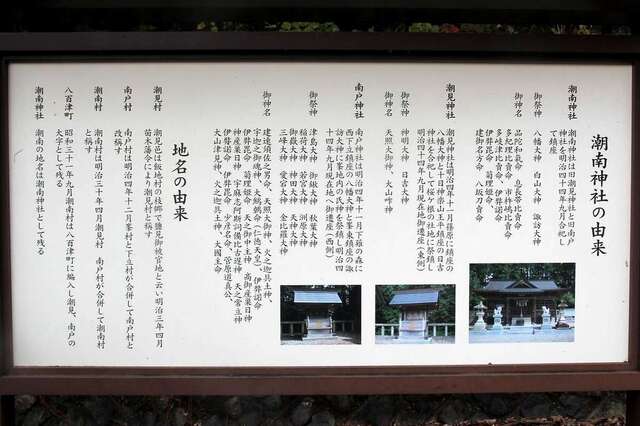 潮南神社の由来
潮南神社 潮南神社は旧潮見神社と旧南戸
神社を明治四十四年九月合祀し
て鎮座
御祭神 八幡大神 白山大神 諏訪大神
御神名 品陀和氣命 息長帯比売命
多紀理比売命 市杵嶋比売命
多岐津比売命 伊弉諾命
伊弉冊命 菊理姫命
建御名方命 八坂刀売命
潮見神社 潮見神社は明治四年十一月篠原に鎮座の
八幡大神と十日神楽山王平鎮座の日吉
神社を合祀して桜ケ根の社地に祭鎮し
明治四十四年九月現在地御遷座(東側)
御祭神 神明大神 日吉大神
御神名 天照大御神 大山咋神
南戸神社 南戸神社は明治四年十一月下菰の森に
西下立鎮座の八幡大神と峯東鎮座の諏
訪大神に峯地内の氏神を祭鎮し明治四
十四年九月現在地へ御遷座(西側)
御祭神 津島大神 御鍬大神 秋葉大神
稲荷大神 若宮大神 洲原大神
御嶽大神 神田大神 天神大神
三峰大神 愛宕大神 金比羅大神
御神名 建速須佐之男命、天照大御神、火之迦具土神、
宇迦之御魂神、大鷦鷯命(仁徳天皇)、伊弉諾命
伊弉冊命 菊理姫命 天之御中主神 高御産巣日神
神産巣日神 宇麻志阿斯訶備比古遅神 天之常立神
伊弉諾命 伊弉冊命 少彦名命、菅原道真公
大山津見神、火之迦具土神、大國主命
地名の由来
潮見村 潮見邑は飯地村の枝郷で塩見御被官地と云い明治三年四月
苗木藩令により潮見村と称す
南戸村 南戸村は明治四年十二月峯村と下立村が合併して南戸村と
改称す
潮南村 潮南村は明治三十年四月潮見村 南戸村が合併して潮南村
と称す
八百津町 昭和三十一年九月潮南村は八百津町に編入し潮見、南戸の
大字として残る
潮南神社 潮南の地名は潮南神社として残る